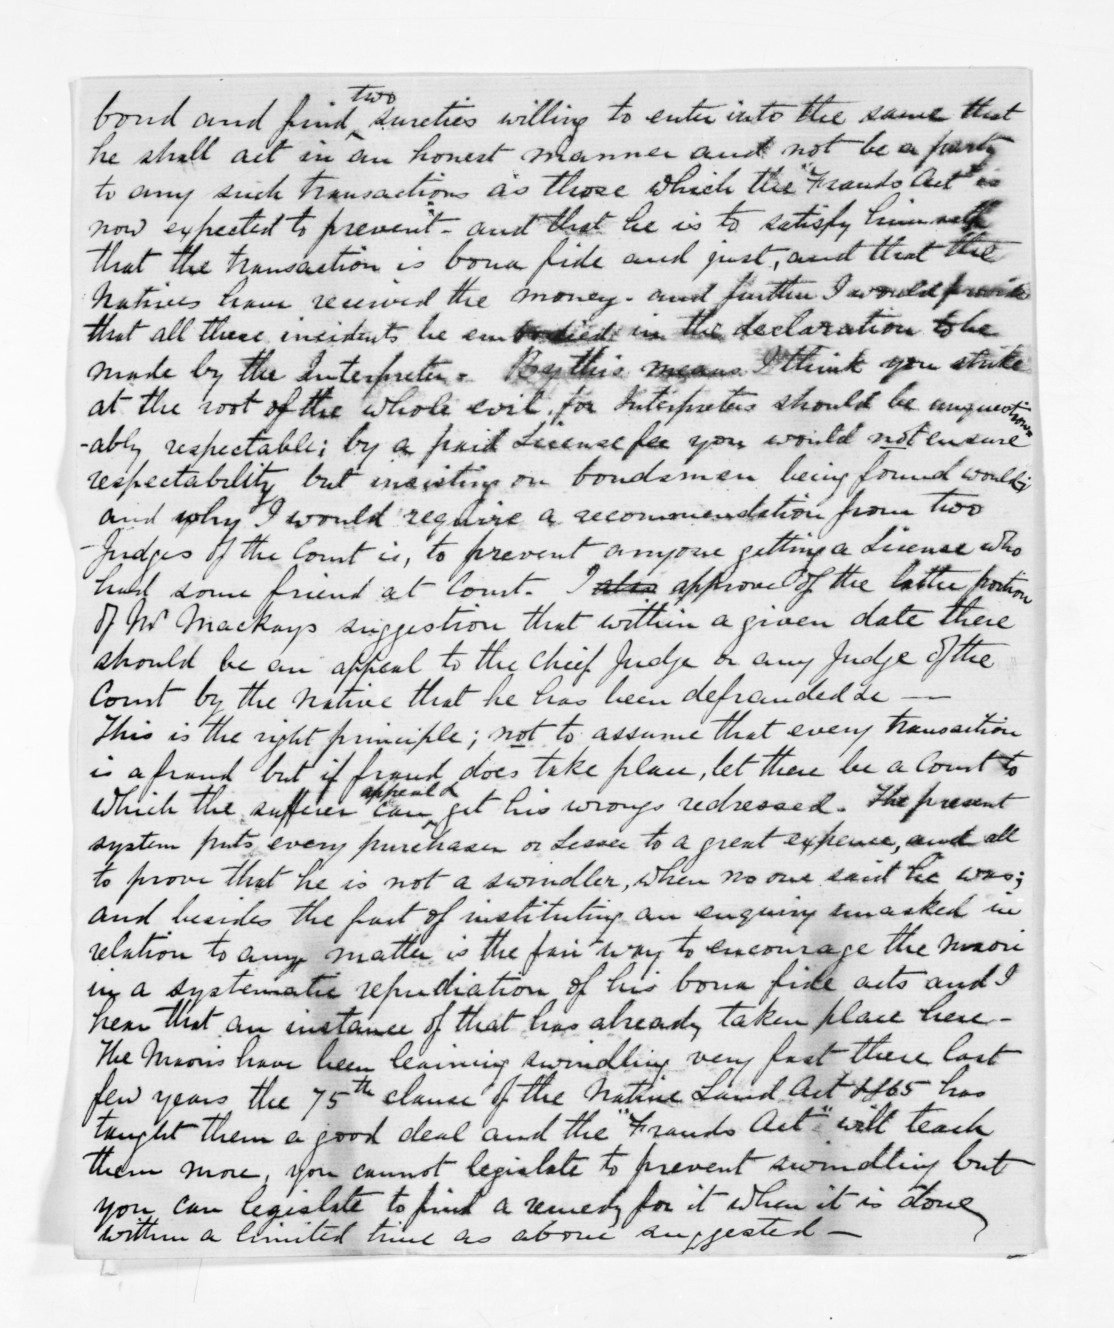 bond and find two sureties willing to enter into the same that
he shall act in an honest manner and not be a party
to any such transactions as those which the "Frauds Act" is
now expected to prevent - and that he is to satisfy himself
that the transaction is bona fide and just, and that the
Natives have received the money - and further I would provide
that all these incidents be embodied in the declaration to be
made by the Interpreter - By this means I think you strike
at the root of the whole evil, for Interpreters should be unquestion
-ably respectable; by a paid License fee you would not ensure
respectability but insisting on bondsmen being found would;
and why I would require a recommendation from two
Judges of the Court is, to prevent anyone getting a License who
had some friend at Court - I also approve of the latter portion
of Mr Mackays suggestion that within a given date there
should be an appeal to the Chief Judge or any Judge of the
Court by the Native that he has been defrauded &c —
This is the right principle; not to assume that every transaction
is a fraud but if fraud does take place, let there be a Court to
which the sufferer can appeal & get his wrongs redressed - The present
system puts every purchaser or Lessee to a great expense, and all
to prove that he is not a swindler, when no one said he was;
and besides the fact of instituting an enquiry unasked in
relation to any matter is the fair way to encourage the Maori
in a systematic repudiation of his bona fide acts and I
hear that an instance of that has already taken place here -
The Maoris have been learning swindling very fast these last
few years the 75th clause of the Native Land Act 1865 has
taught them a good deal and the "Frauds Act" will teach
them more, you cannot legislate to prevent swindling but
you can legislate to find a remedy for it when it is done,
within a limited time as above suggested —